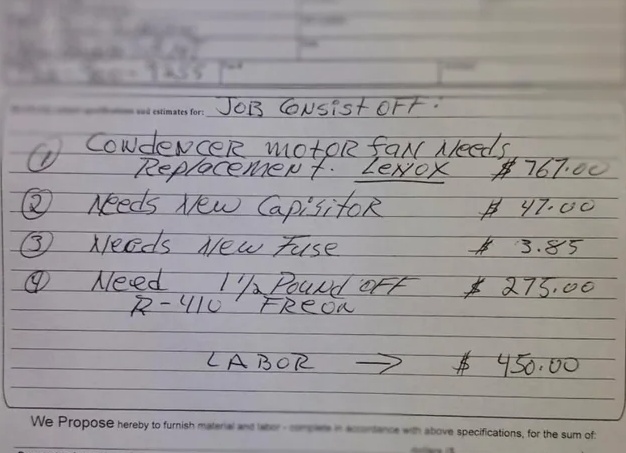 and estimates for: JOB CONSIST OFF:
① CONDENCER MOTOR FAN NEEDS
Replacement. LENOX $ 767.00
② Needs New Capisitor $ 47.00
③ Needs New Fuse $ 3.85
④ Need 1 1/2 Pound OFF $ 275.00
R-410 FREON
LABOR → $ 450.00
We Propose hereby to furnish material and labor - complete in accordance with above specifications, for the sum of: